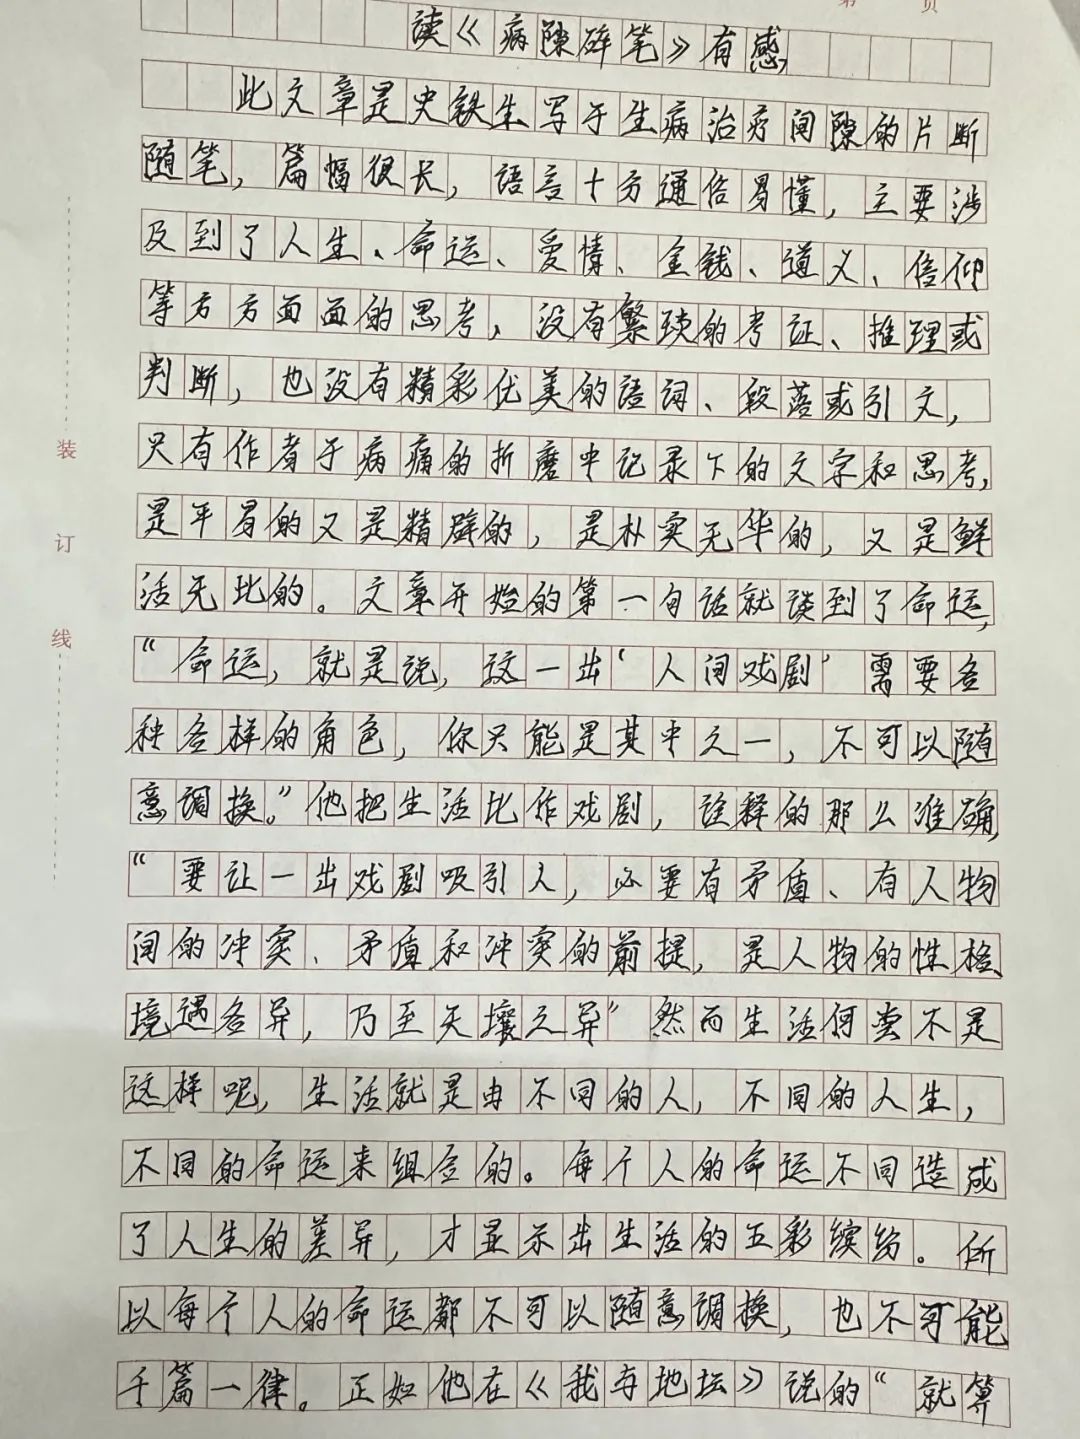 页
读《病隙碎笔》有感
此文章是史铁生写于生病治疗间隙的片断
随笔，篇幅很长，语言十方通俗易懂，主要涉
及到了人生、命运、爱情、金钱、道义、信仰
等方方面面的思考，没有繁琐的考证、推理或
判断，也没有精彩优美的语词、段落或引文，
只有作者于病痛的折磨中记录下的文字和思考，
是平易的又是精辟的，是朴实无华的，又是鲜
活无比的。文章开始的第一句话就谈到了命运，
“命运，就是说，这一出‘人间戏剧’需要各
种各样的角色，你只能是其中之一，不可以随
意调换。”他把生活比作戏剧，诠释的那么准确，
“要让一出戏剧吸引人，必要有矛盾、有人物
间的冲突、矛盾和冲突的前提，是人物的性格、
境遇各异，乃至天壤之异”然而生活何尝不是
这样呢，生活就是由不同的人，不同的人生，
不同的命运来组合的。每个人的命运不同造成
了人生的差异，才显示出生活的五彩缤纷。所
以每个人的命运都不可以随意调换，也不可能
千篇一律。正如他在《我与地坛》说的“就算
装
订
线